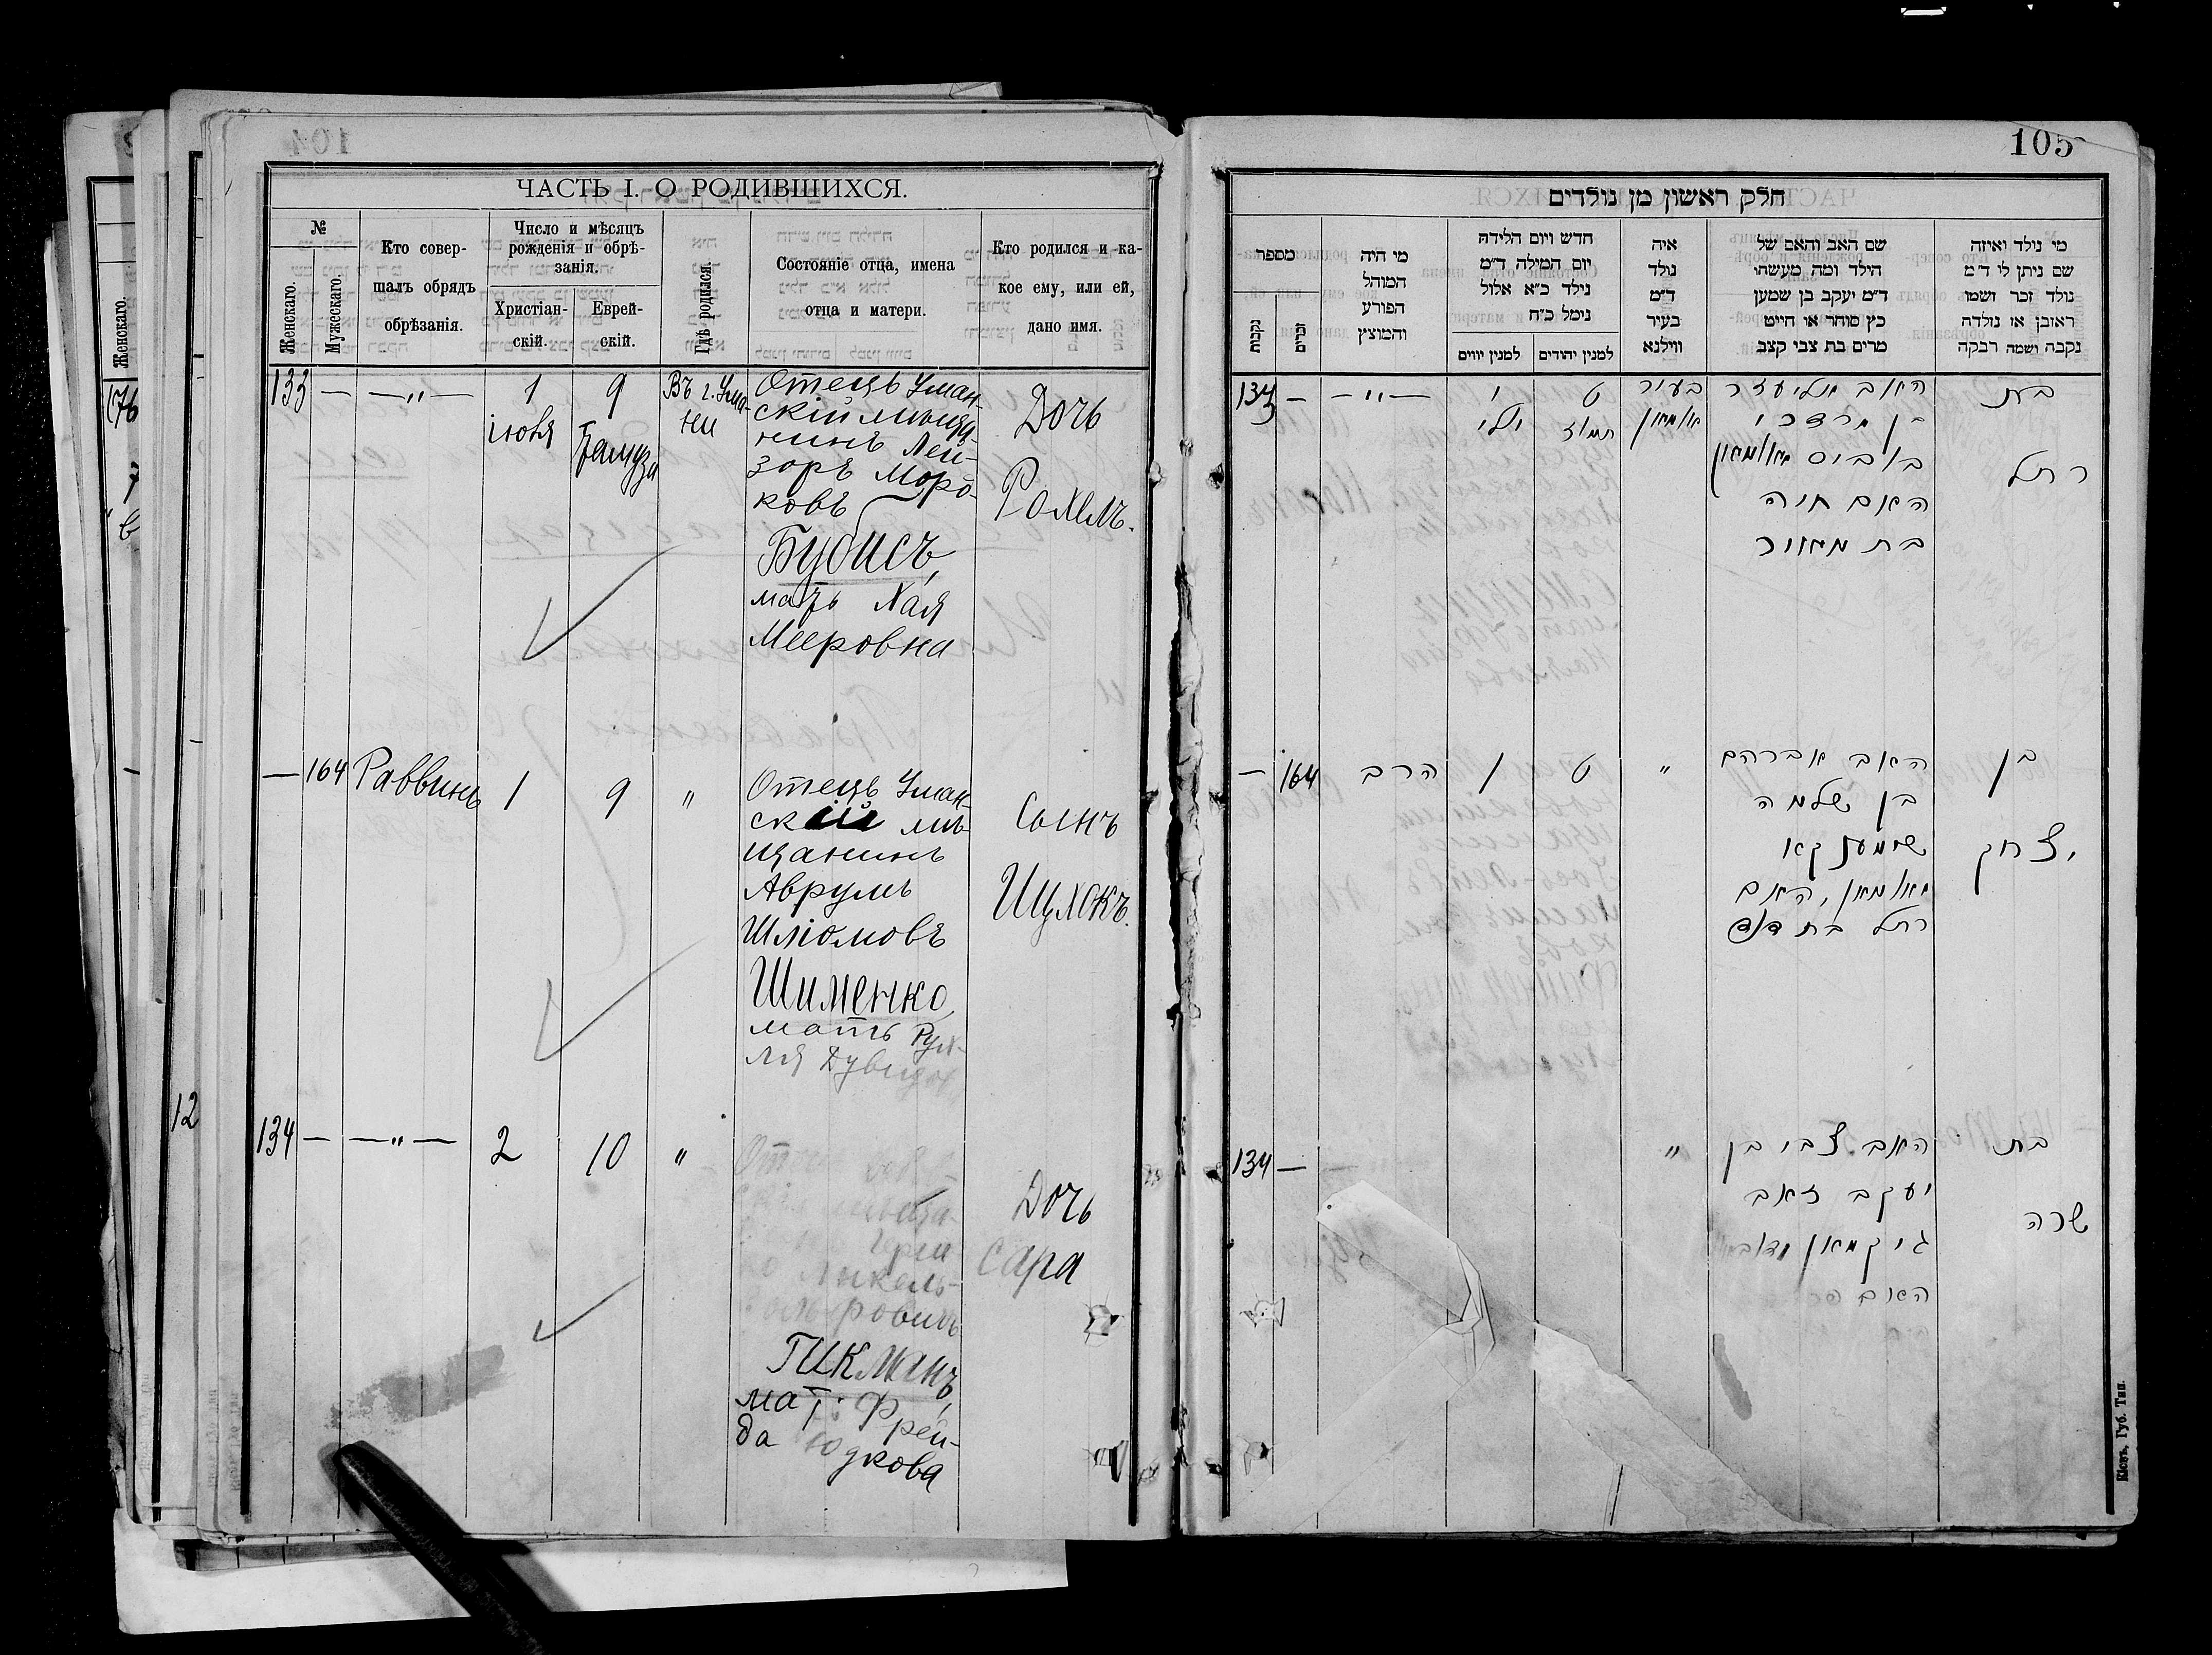 ЧАСТЬ I. О РОДИВШИХСЯ.
№
Женскаго.
Мужескаго.
Кто совер-
шалъ обрядъ
обрѣзанія.
Число и мѣсяцъ
рожденія и обрѣ-
занія.
Христіан-
скій.
Еврей-
скій.
Гдѣ родился.
Состояніе отца, имена
отца и матери.
Кто родился и ка-
кое ему, или ей,
дано имя.
133 — —"— 1 іюля 9 Тамуза
Въ г. Ума-
ни
Отецъ Уман-
скій мѣща-
нинъ Лей-
зоръ Мордо-
ковъ
Бубисъ,
мать Хая
Мееровна
Дочь
Рохель.
— 164 Раввинъ 1 9 "
Отецъ Уман-
скій мѣ-
щанинъ
Аврумъ
Шліомовъ
Шименко,
мать Рух-
ля Дувидов
Сынъ
Ицхокъ.
134 — —"— 2 10 "
Гикманъ,
мат. Фрей-
да Юдкова
Дочь
Сара
12
Женскаго.
105
חלק ראשון מן נולדים
מספר
נקבות
זכרים
מי היה
המוהל
הפורע
והמוצץ
חדש ויום הלידה
יום המילה ד״מ
נילד כ״א אלול
נימל כ״ח
למנין יווים
למנין יהודים
איה
נולד
ד״מ
בעיר
ווילנא
שם האב והאם של
הילד ומה מעשהו
ד״מ יעקב בן שמען
כץ סוחר או חייט
מרים בת צבי קצב
מי נולד ואיזה
שם ניתן לי ד״מ
נולד זכר ושמו
ראובן או נולדה
נקבה ושמה רבקה
133 — —"—
י
יולי
ט
תמוז
בעיר
אומאן
האב אליעזר
בן מרדכי
בוביס מאומאן
האם חיה
בת מאיר
בת
רחל
— 164 הרב 1 ט "
האב אברהם
בן שלמה
שימענקאו
מאומאן, האם
רחל בת דוד
בן
יצחק
134 — "
האב צבי בן
יעקב זאב
גיקמאן
האם
בת
שרה
Кіевъ, Губ. Тип.